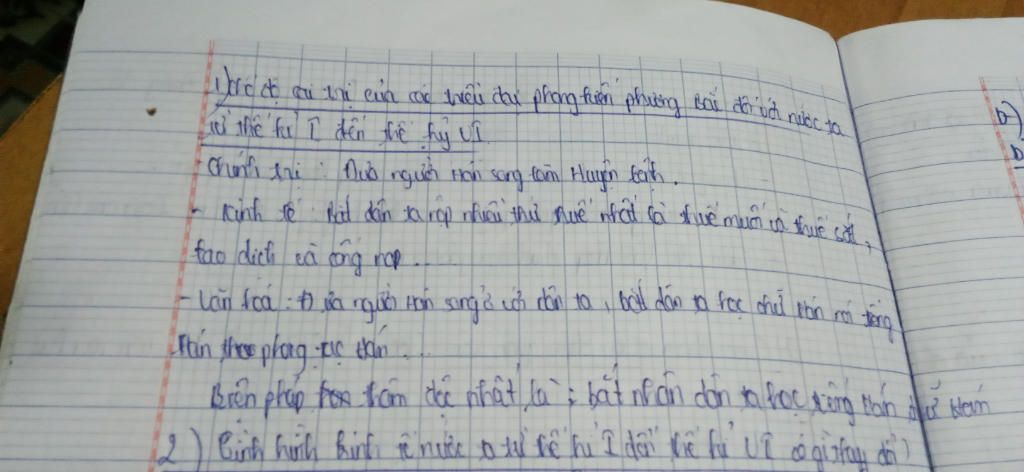 1) Chế độ cai trị của các triều đại phong kiến phương Bắc đối với nước ta
từ thế kỉ I đến thế kỷ VI
- Chính trị : Đưa người Hán sang làm Huyện lệnh.
- Kinh tế : Bắt dân ta nộp nhiều thứ thuế nhất là thuế muối và thuế sắt,
lao dịch và cống nạp..
- Văn hoá : Đưa người Hán sang ở với dân ta, bắt dân ta học chữ Hán nói tiếng
Hán theo phong tục Hán.
Biện pháp thâm độc nhất là : bắt nhân dân ta học tiếng Hán
2) Tình hình kinh tế nước ta từ thế kỉ I đến thế kỉ VI có gì thay đổi?
D)